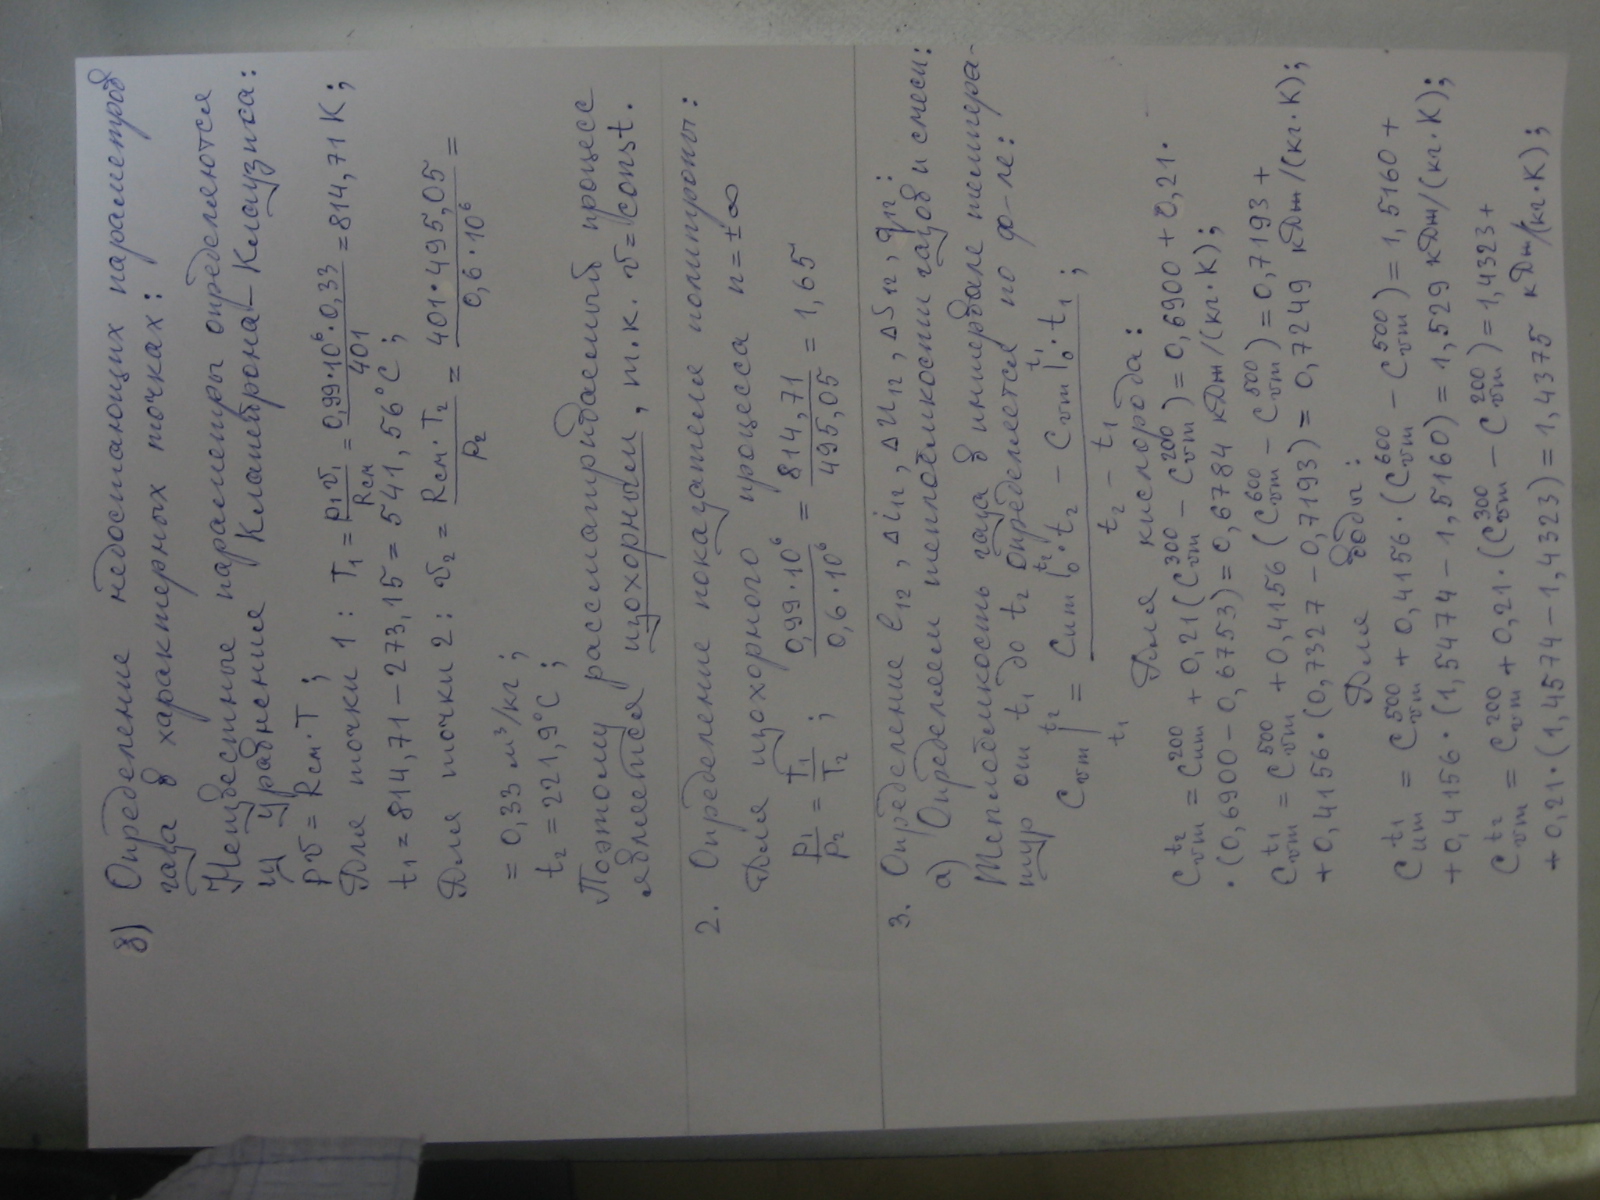 в) Определение недостающих параметров
газа в характерных точках:
Неизвестные параметры определяются
из уравнения Клапейрона–Клаузиса:
pv = Rсм·T ;
Для точки 1 : T₁ = p₁v₁/Rсм = 0,99·10⁶·0,33/401 = 814,71 K ;
t₁ = 814,71 – 273,15 = 541,56°C ;
Для точки 2: v₂ = Rсм·T₂/p₂ = 401·495,05/0,6·10⁶ =
= 0,33 м³/кг ;
t₂ = 221,9°C ;
Поэтому рассматриваемый процесс
является изохорным, т.к. v = const.
2. Определение показателя политропы:
Для изохорного процесса n = ± ∞
p₁/p₂ = T₁/T₂ ; 0,99·10⁶/0,6·10⁶ = 814,71/495,05 = 1,65
3. Определение l₁₂, Δi₁₂, ΔU₁₂, ΔS₁₂, q₁₂:
а) Определяем теплоёмкости газов и смеси:
Теплоёмкость газа в интервале темпера-
тур от t₁ до t₂ определяется по ф-ле:
Cvm|t₁^t₂ = (Cvm|₀^t₂·t₂ – Cvm|₀^t₁·t₁)/(t₂ – t₁) ;
Для кислорода:
Cvm^t₂ = Cvm^200 + 0,21(Cvm^300 – Cvm^200) = 0,6900 + 0,21·
·(0,6900 – 0,6753) = 0,6784 кДж/(кг·К);
Cvm^t₁ = Cvm^500 + 0,4156 (Cvm^600 – Cvm^500) = 0,7193 +
+ 0,4156·(0,7327 – 0,7193) = 0,7249 кДж/(кг·К);
Для воды:
Cvm^t₁ = Cvm^500 + 0,4156·(Cvm^600 – Cvm^500) = 1,5160 +
+ 0,4156·(1,5474 – 1,5160) = 1,529 кДж/(кг·К);
Cvm^t₂ = Cvm^200 + 0,21·(Cvm^300 – Cvm^200) = 1,4323 +
+ 0,21·(1,4574 – 1,4323) = 1,4375 кДж/(кг·К);